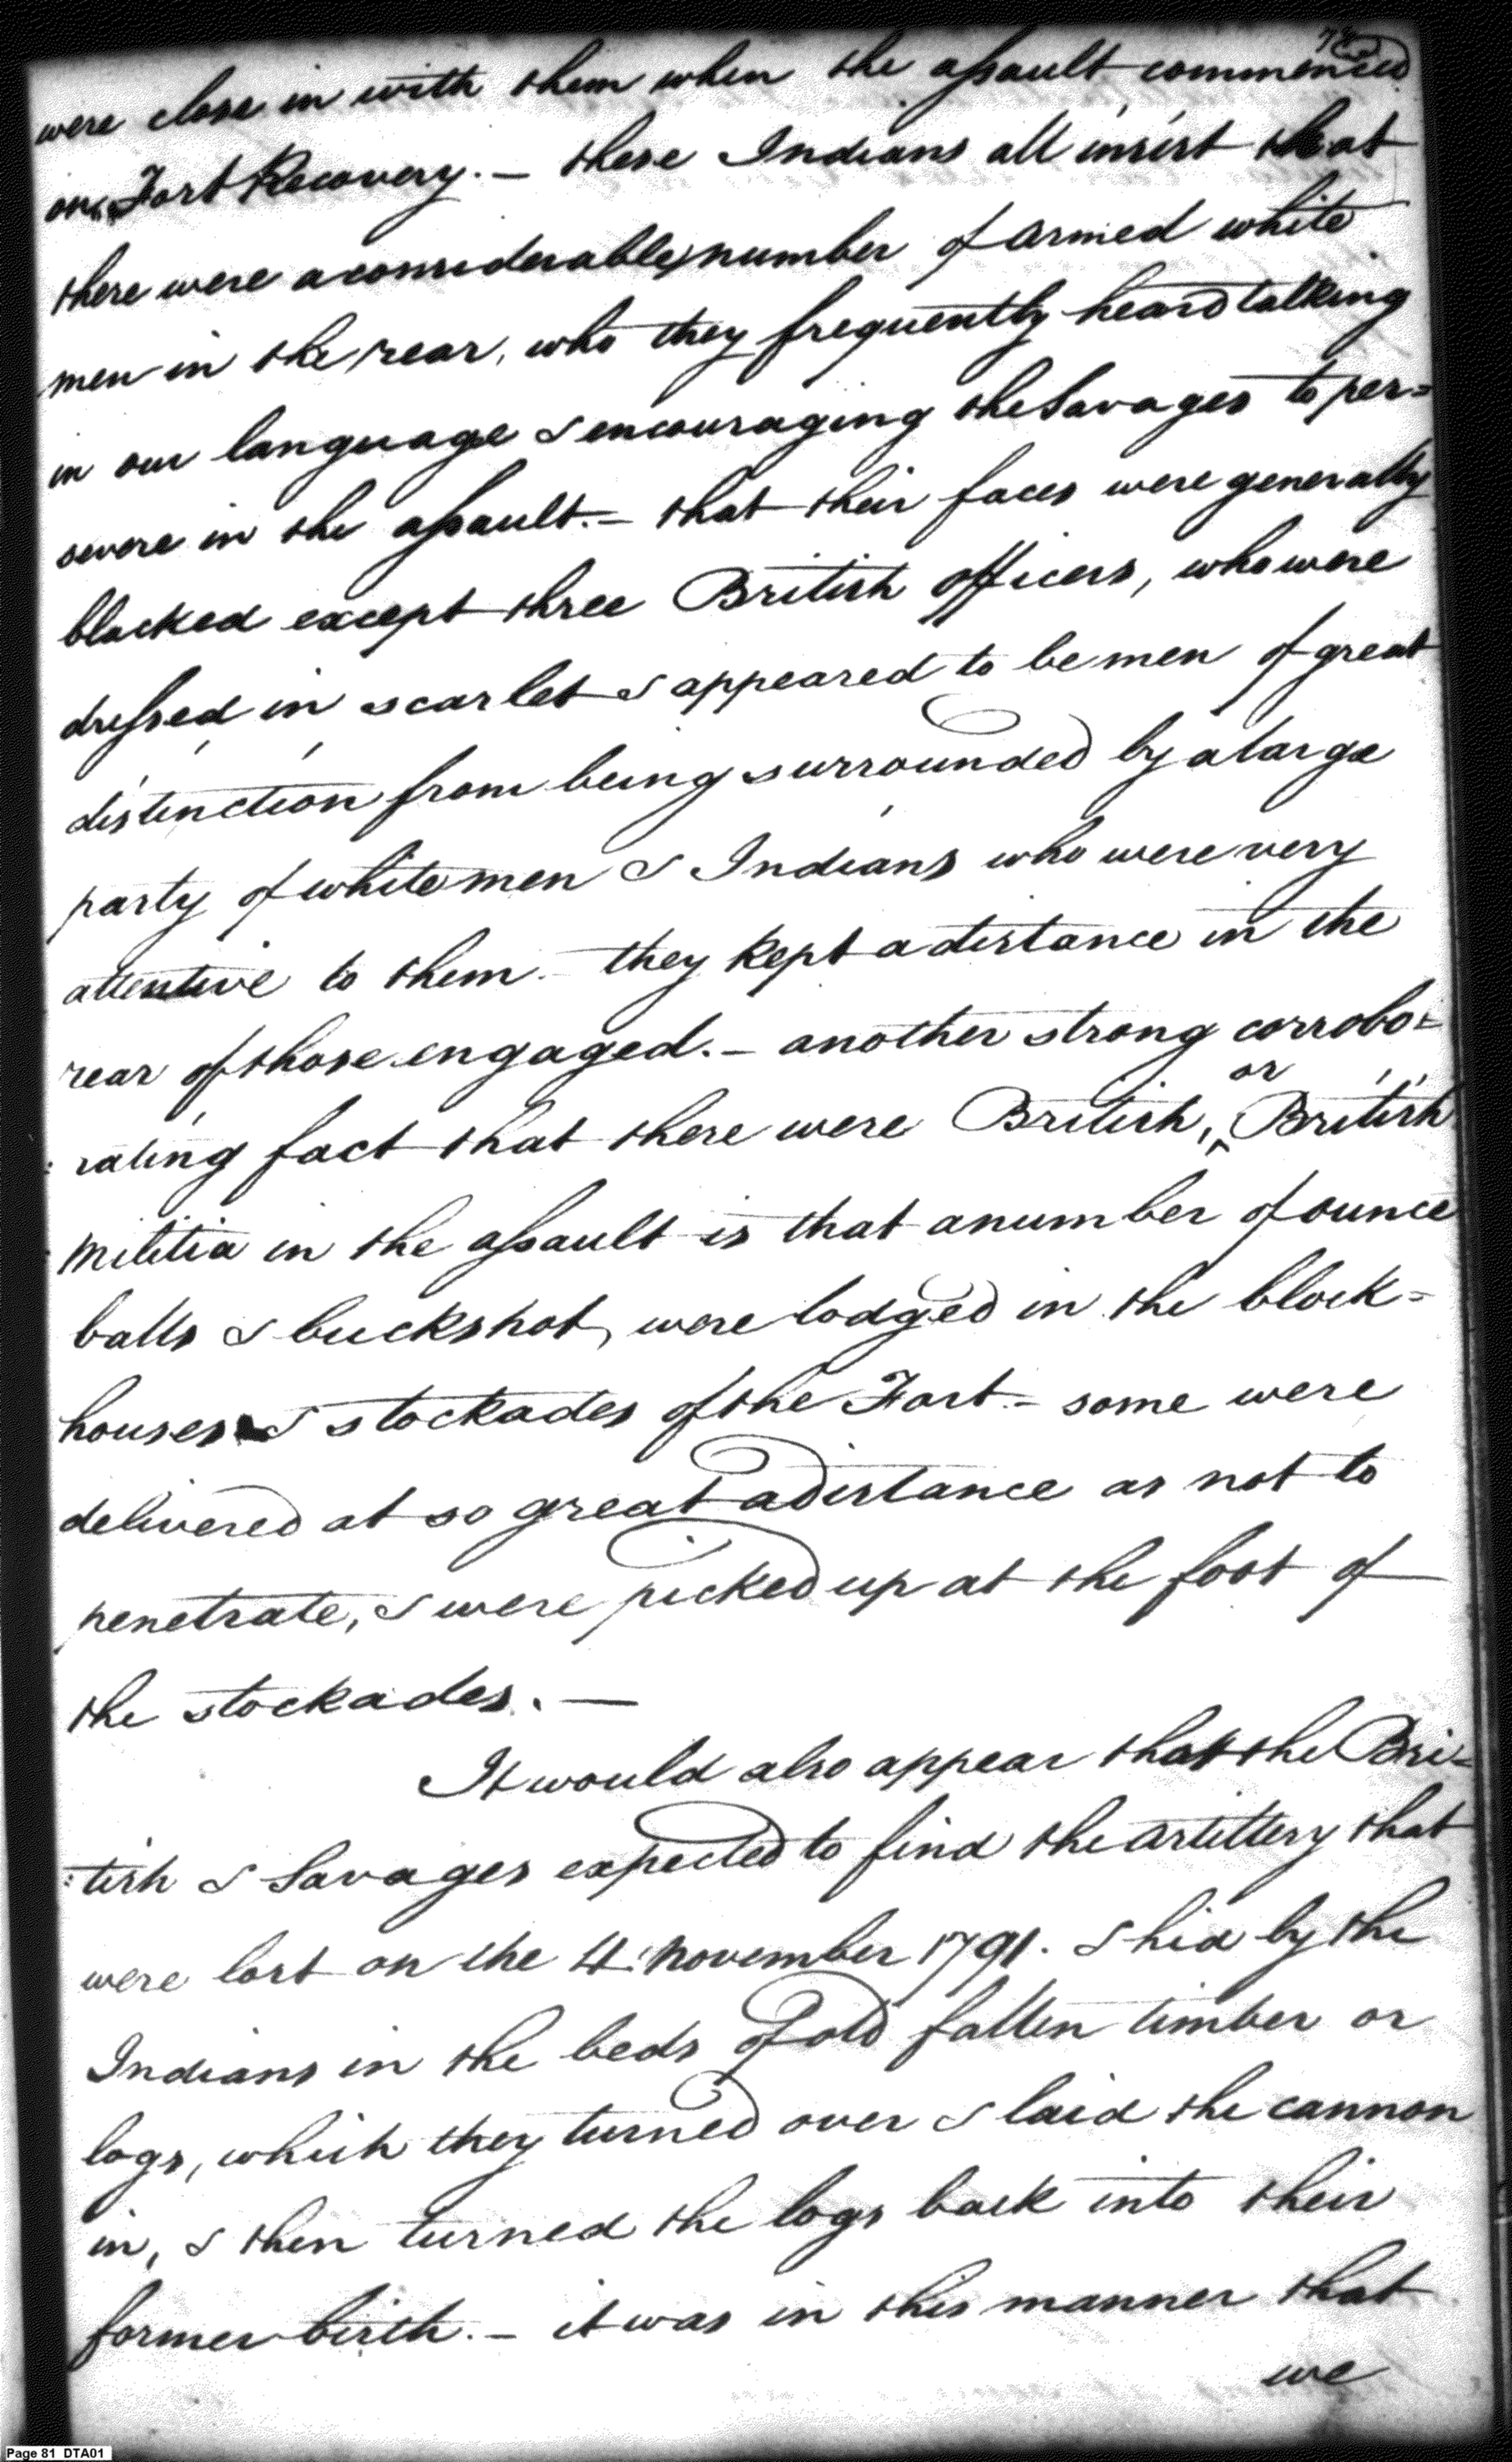 were close in with them when the assault commenced
on Fort Recovery. — these Indians all insist that
there were a considerable number of armed white
men in the rear, who they frequently heard talking
in our language & encouraging the Savages to per=
severe in the assault. — that their faces were generally
blacked except three British officers, who were
dressed in scarlet & appeared to be men of great
distinction from being surrounded by a large
party of white men & Indians who were very
attentive to them. — they kept a distance in the
rear of those engaged. — another strong corrobo=
or
:rating fact that there were British, ^ British
Militia in the assault is that a number of ounce
balls & buckshot, were lodged in the block=
houses & stockades of the Fort. — some were
delivered at so great a distance as not to
penetrate, & were picked up at the foot of
the stockades. —
It would also appear that the Bri=
:tish & Savages expected to find the Artillery that
were lost on the 4: November 1791. & hid by the
Indians in the beds of old fallen timber or
logs, which they turned over & laid the cannon
in, & then turned the logs back into their
former birth. — it was in this manner that
we
Page 81 DTA01